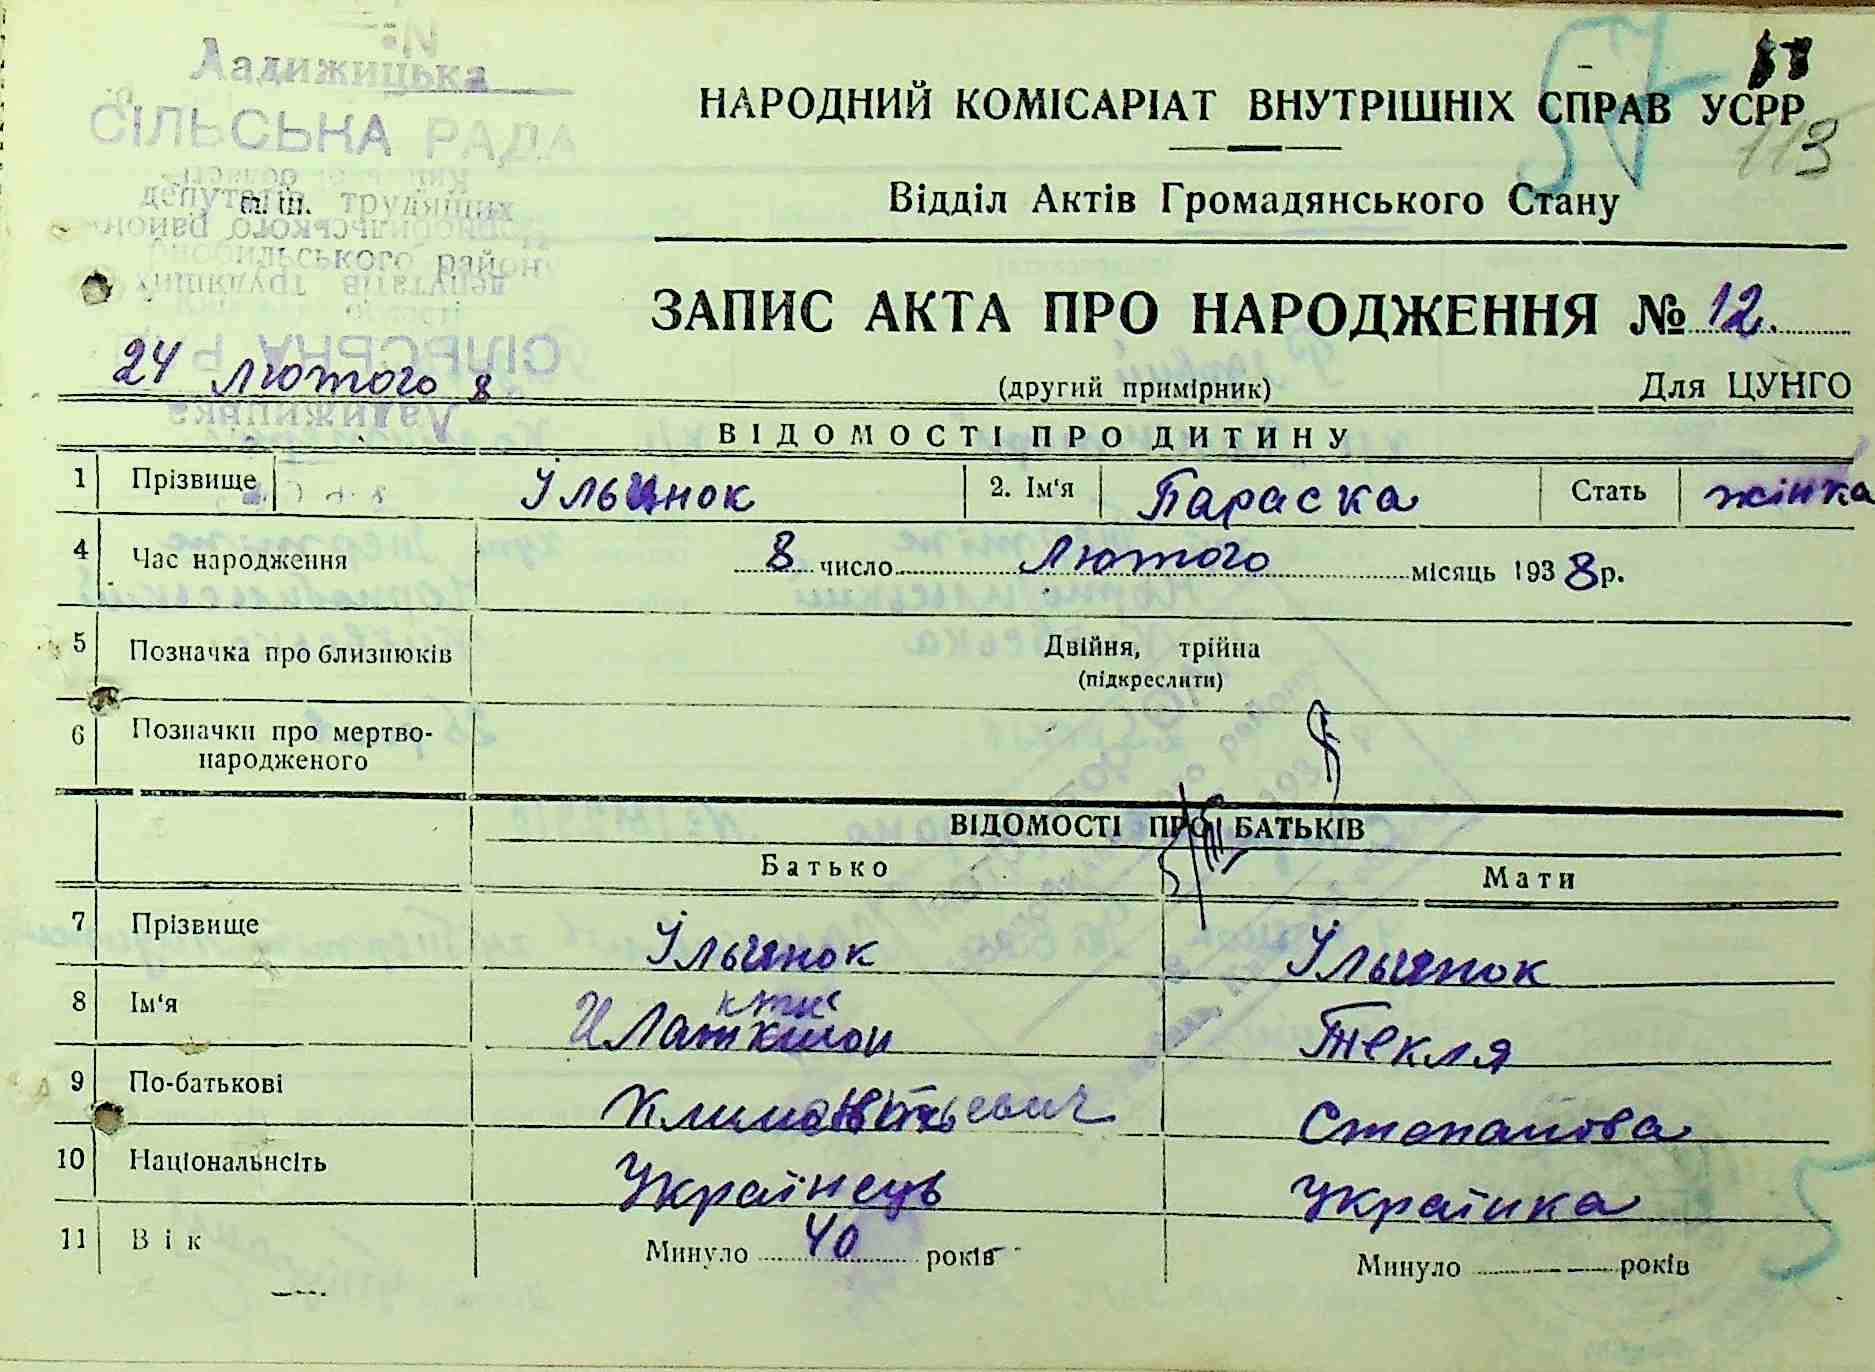 Ладижицька
СІЛЬСЬКА РАДА
депутатів трудящих
п. ш.
57
113
НАРОДНИЙ КОМІСАРІАТ ВНУТРІШНІХ СПРАВ УСРР
Відділ Актів Громадянського Стану
ЗАПИС АКТА ПРО НАРОДЖЕННЯ № 12.
24 лютого 8
(другий примірник)
Для ЦУНГО
ВІДОМОСТІ ПРО ДИТИНУ
1 Прізвище Ільинок 2. Ім'я Параска Стать жінка
4 Час народження 8 число Лютого місяць 1938 р.
5 Позначка про близнюків Двійня, трійна
(підкреслити)
6 Позначки про мертво-
народженого
ВІДОМОСТІ ПРО БАТЬКІВ
Батько Мати
7 Прізвище Ільинок Ільинок
8 Ім'я Текля
9 По-батькові Степанова
10 Національнсіть Українець Українка
11 Вік Минуло 40 років Минуло — років
5